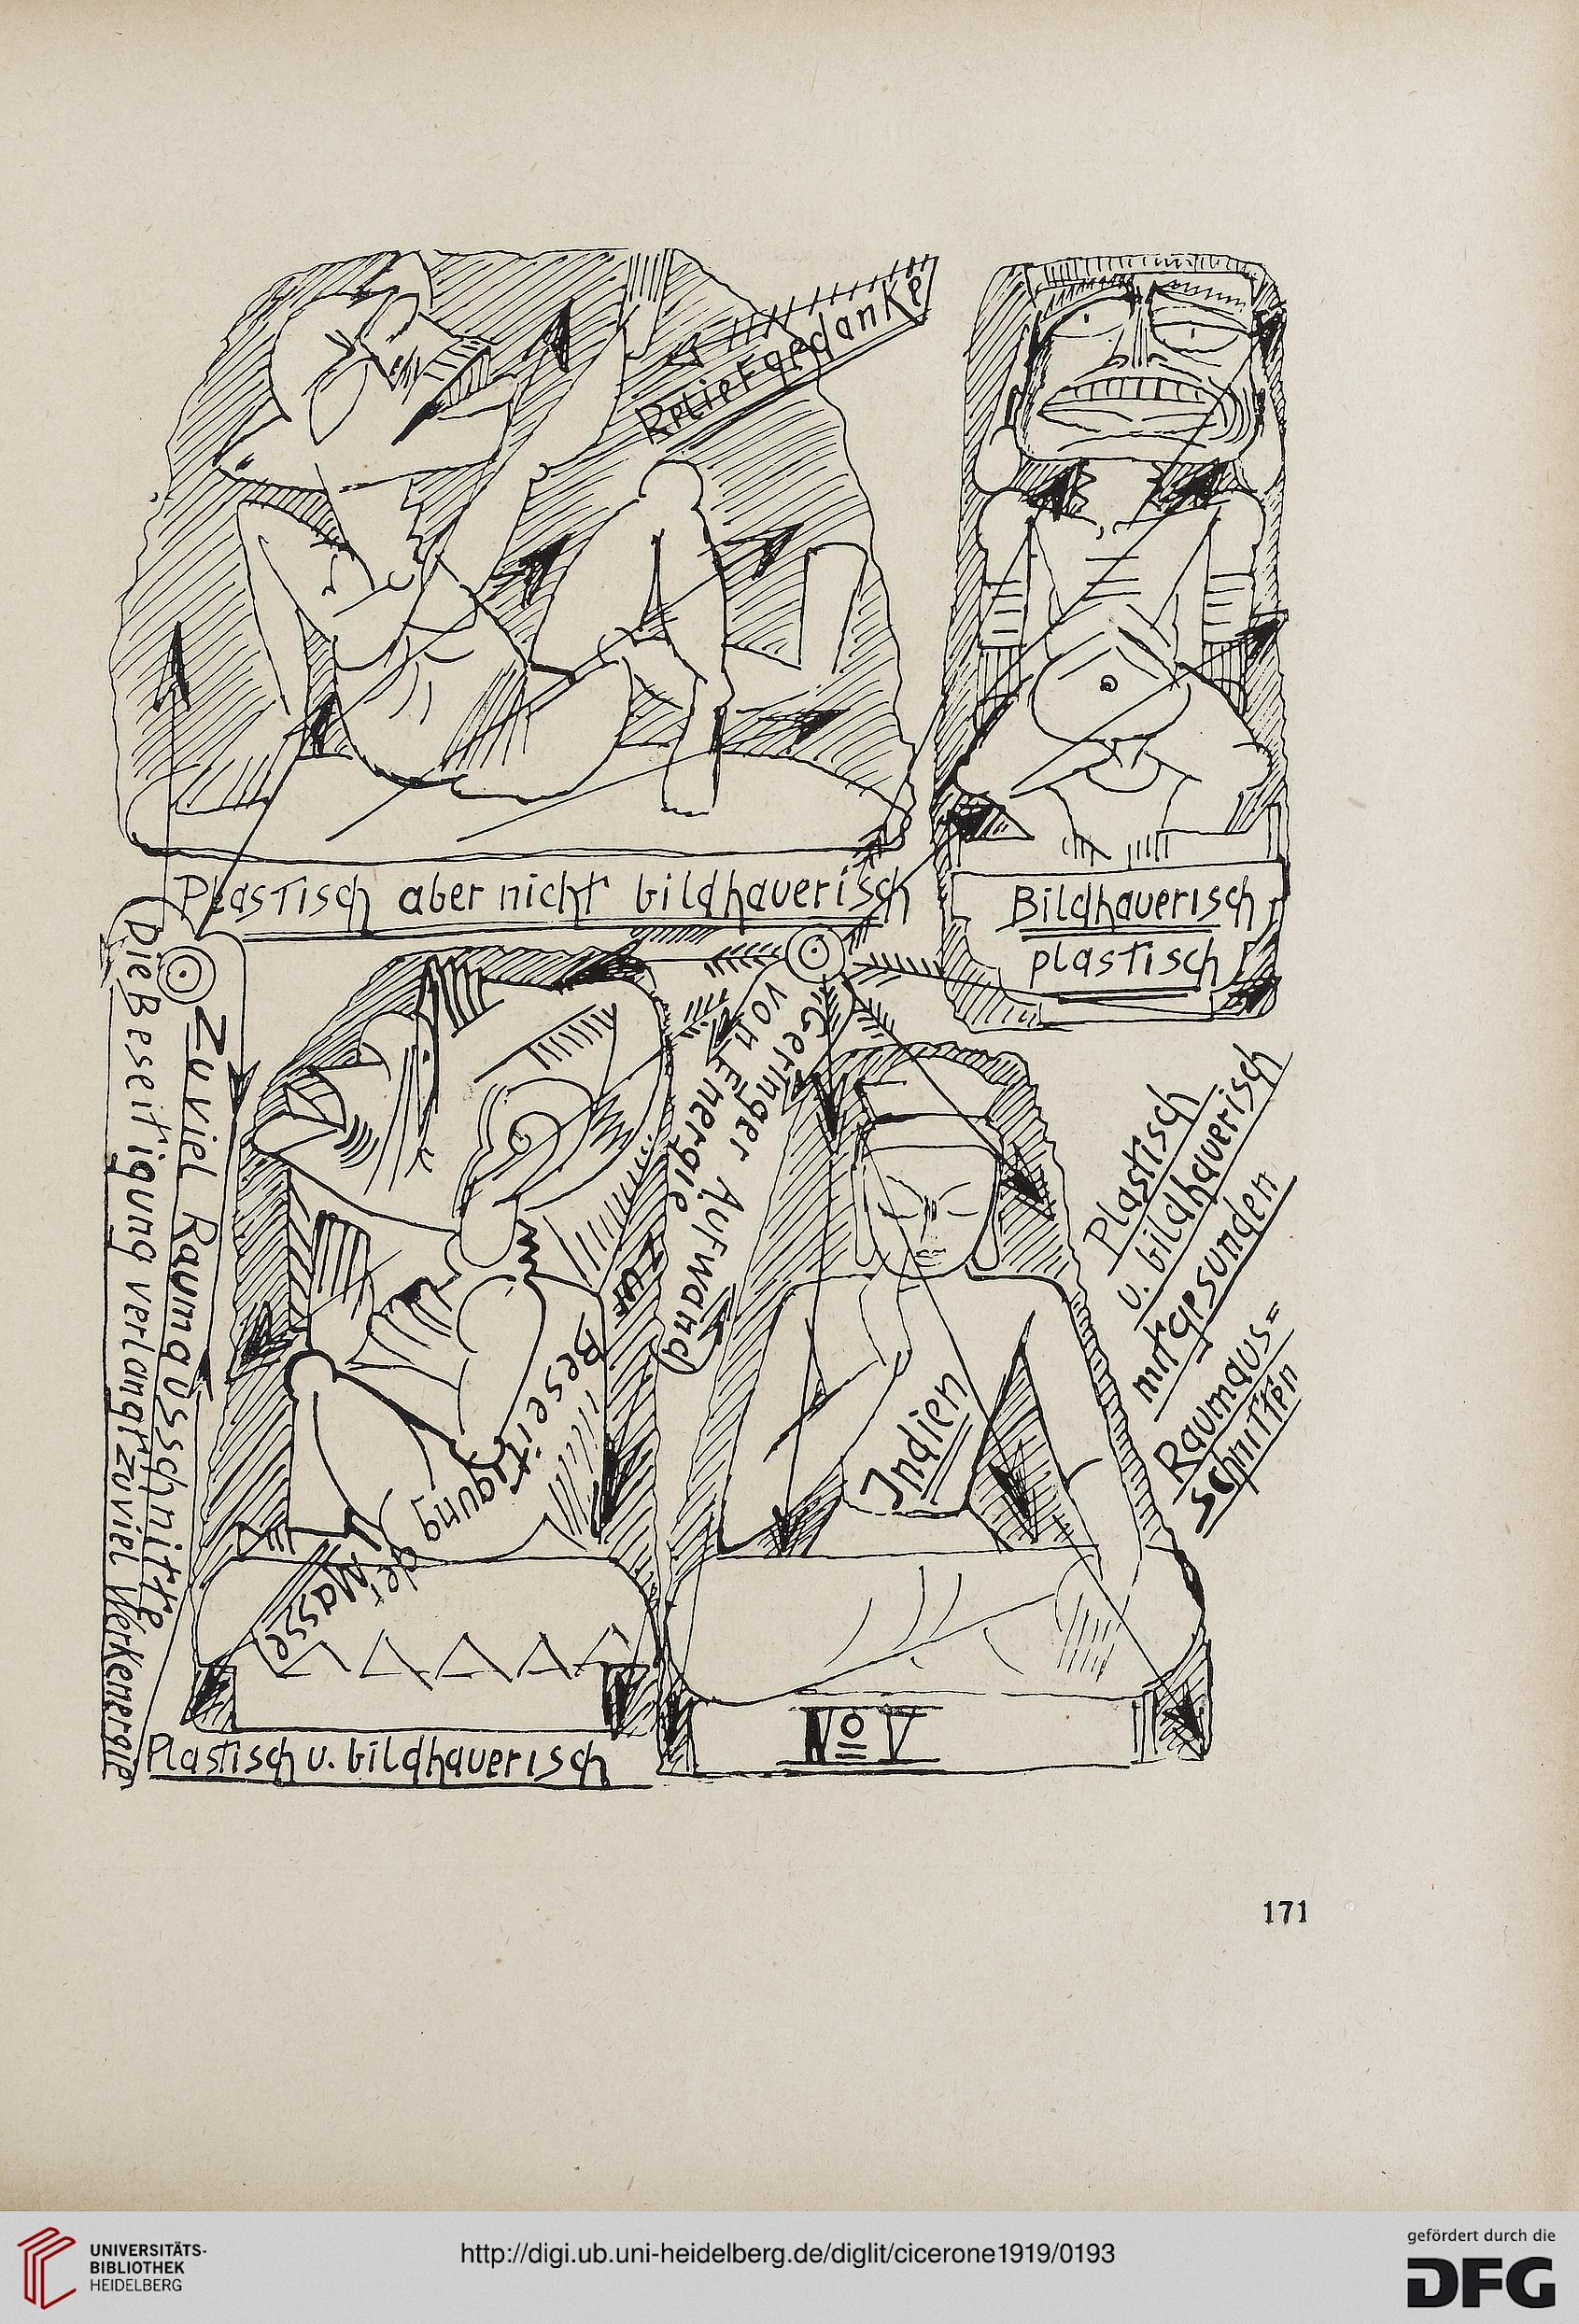 Reliefgedanke
Plastisch aber nicht bildhauerisch
Bildhauerisch
plastisch
Zuviel Raumausschnitte
Die Beseitigung verlangt zuviel Werkenergie
Geringer Aufwand
von Energie
zur Beseitigung
der Masse
Plastisch
u. bildhauerisch
mit gesunden
Raumaus=
schnitten
Indien
Plastisch u. bildhauerisch
No V
171
UNIVERSITÄTS-
BIBLIOTHEK
HEIDELBERG
http://digi.ub.uni-heidelberg.de/diglit/cicerone1919/0193
gefördert durch die
DFG